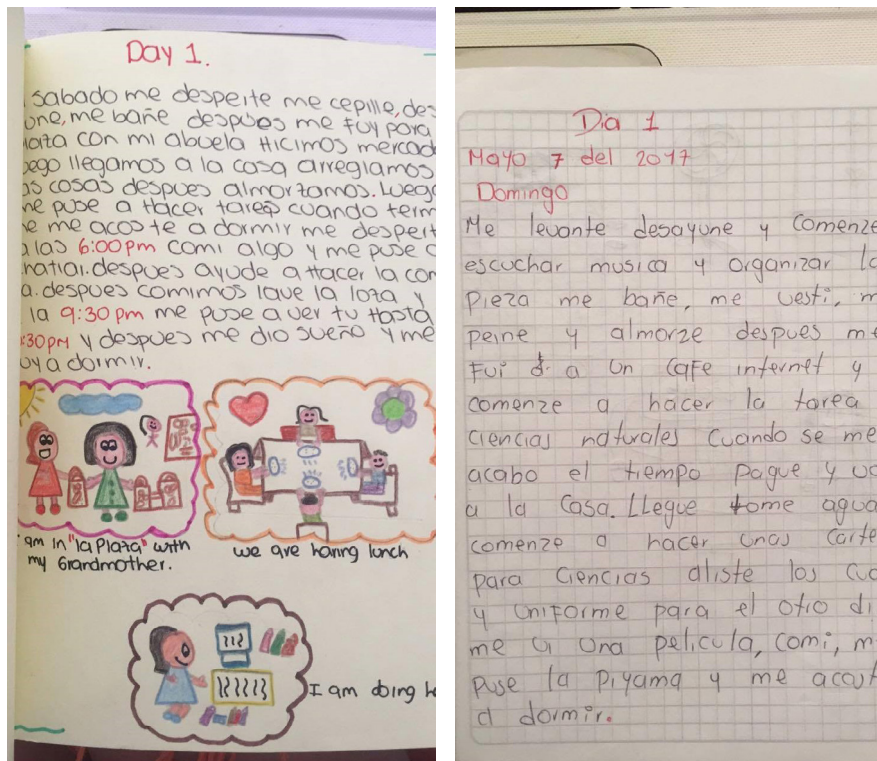 Day 1.
sabado me despeite me cepille, des
une, me bañe despues me fuy para
laza con mi abuela Hicimos mercad
uego llegamos a la casa arreglamos
as cosas despues almorzamos. Luego
me puse a Hacer tarea cuando term
e me acoste a dormir me despert
a las 6:00pm comi algo y me puse a
despues ayude a Hacer la com
a. despues comimos lave la loza y
la 9:30pm me puse a ver tv Hasta
:30pm y despues me dio sueño y me
uy a dormir.
am in "la Plaza" with
my Grandmother.
we are having lunch
I am doing h
Dia 1
Mayo 7 del 2017
Domingo
Me levante desayune y comenze
escuchar musica y organizar la
pieza me bañe, me vesti, m
peine y almorze despues me
Fui a un cafe internet y
comenze a hacer la tarea
ciencias naturales cuando se me
acabo el tiempo pague y
a la casa. Llegue tome agua
comenze a hacer unas carte
para ciencias aliste los cua
y uniforme para el otro di
me a una pelicula, comi, m
puse la piyama y me acost
a dormir.